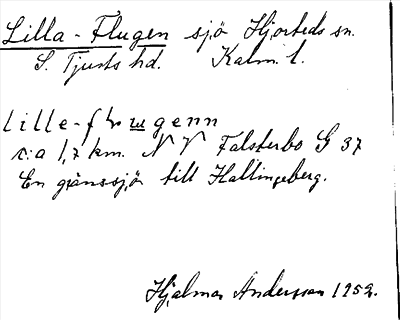 Lilla - Flugen sjö Hjorteds sn.
S. Tjusts hd. Kalm. l.
lille-flugenn
c:a 1,7 km. N V Falsterbo G 37
En gränssjö till Hallingeberg.
Hjalmar Andersson 1952.